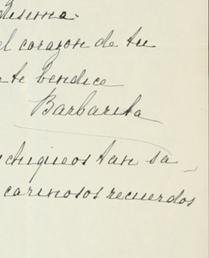 el corazon de tu
te bendice
Barbarita
chiqueos tan sa-
carinosos recuerdos